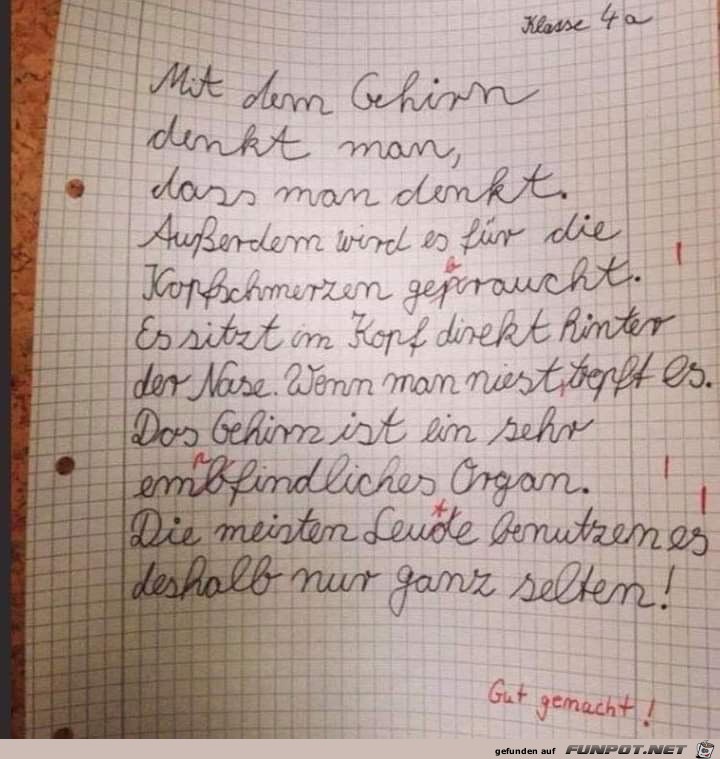 Klasse 4a
Mit dem Gehirn
denkt man,
dass man denkt.
Außerdem wird es für die
Kopfschmerzen gepraucht.
Es sitzt im Kopf direkt hinter
der Nase. Wenn man niest, tropft es.
Das Gehirn ist ein sehr
embfindliches Organ.
Die meisten Leude benutzen es
deshalb nur ganz selten!
Gut gemacht!
gefunden auf FUNPOT.NET